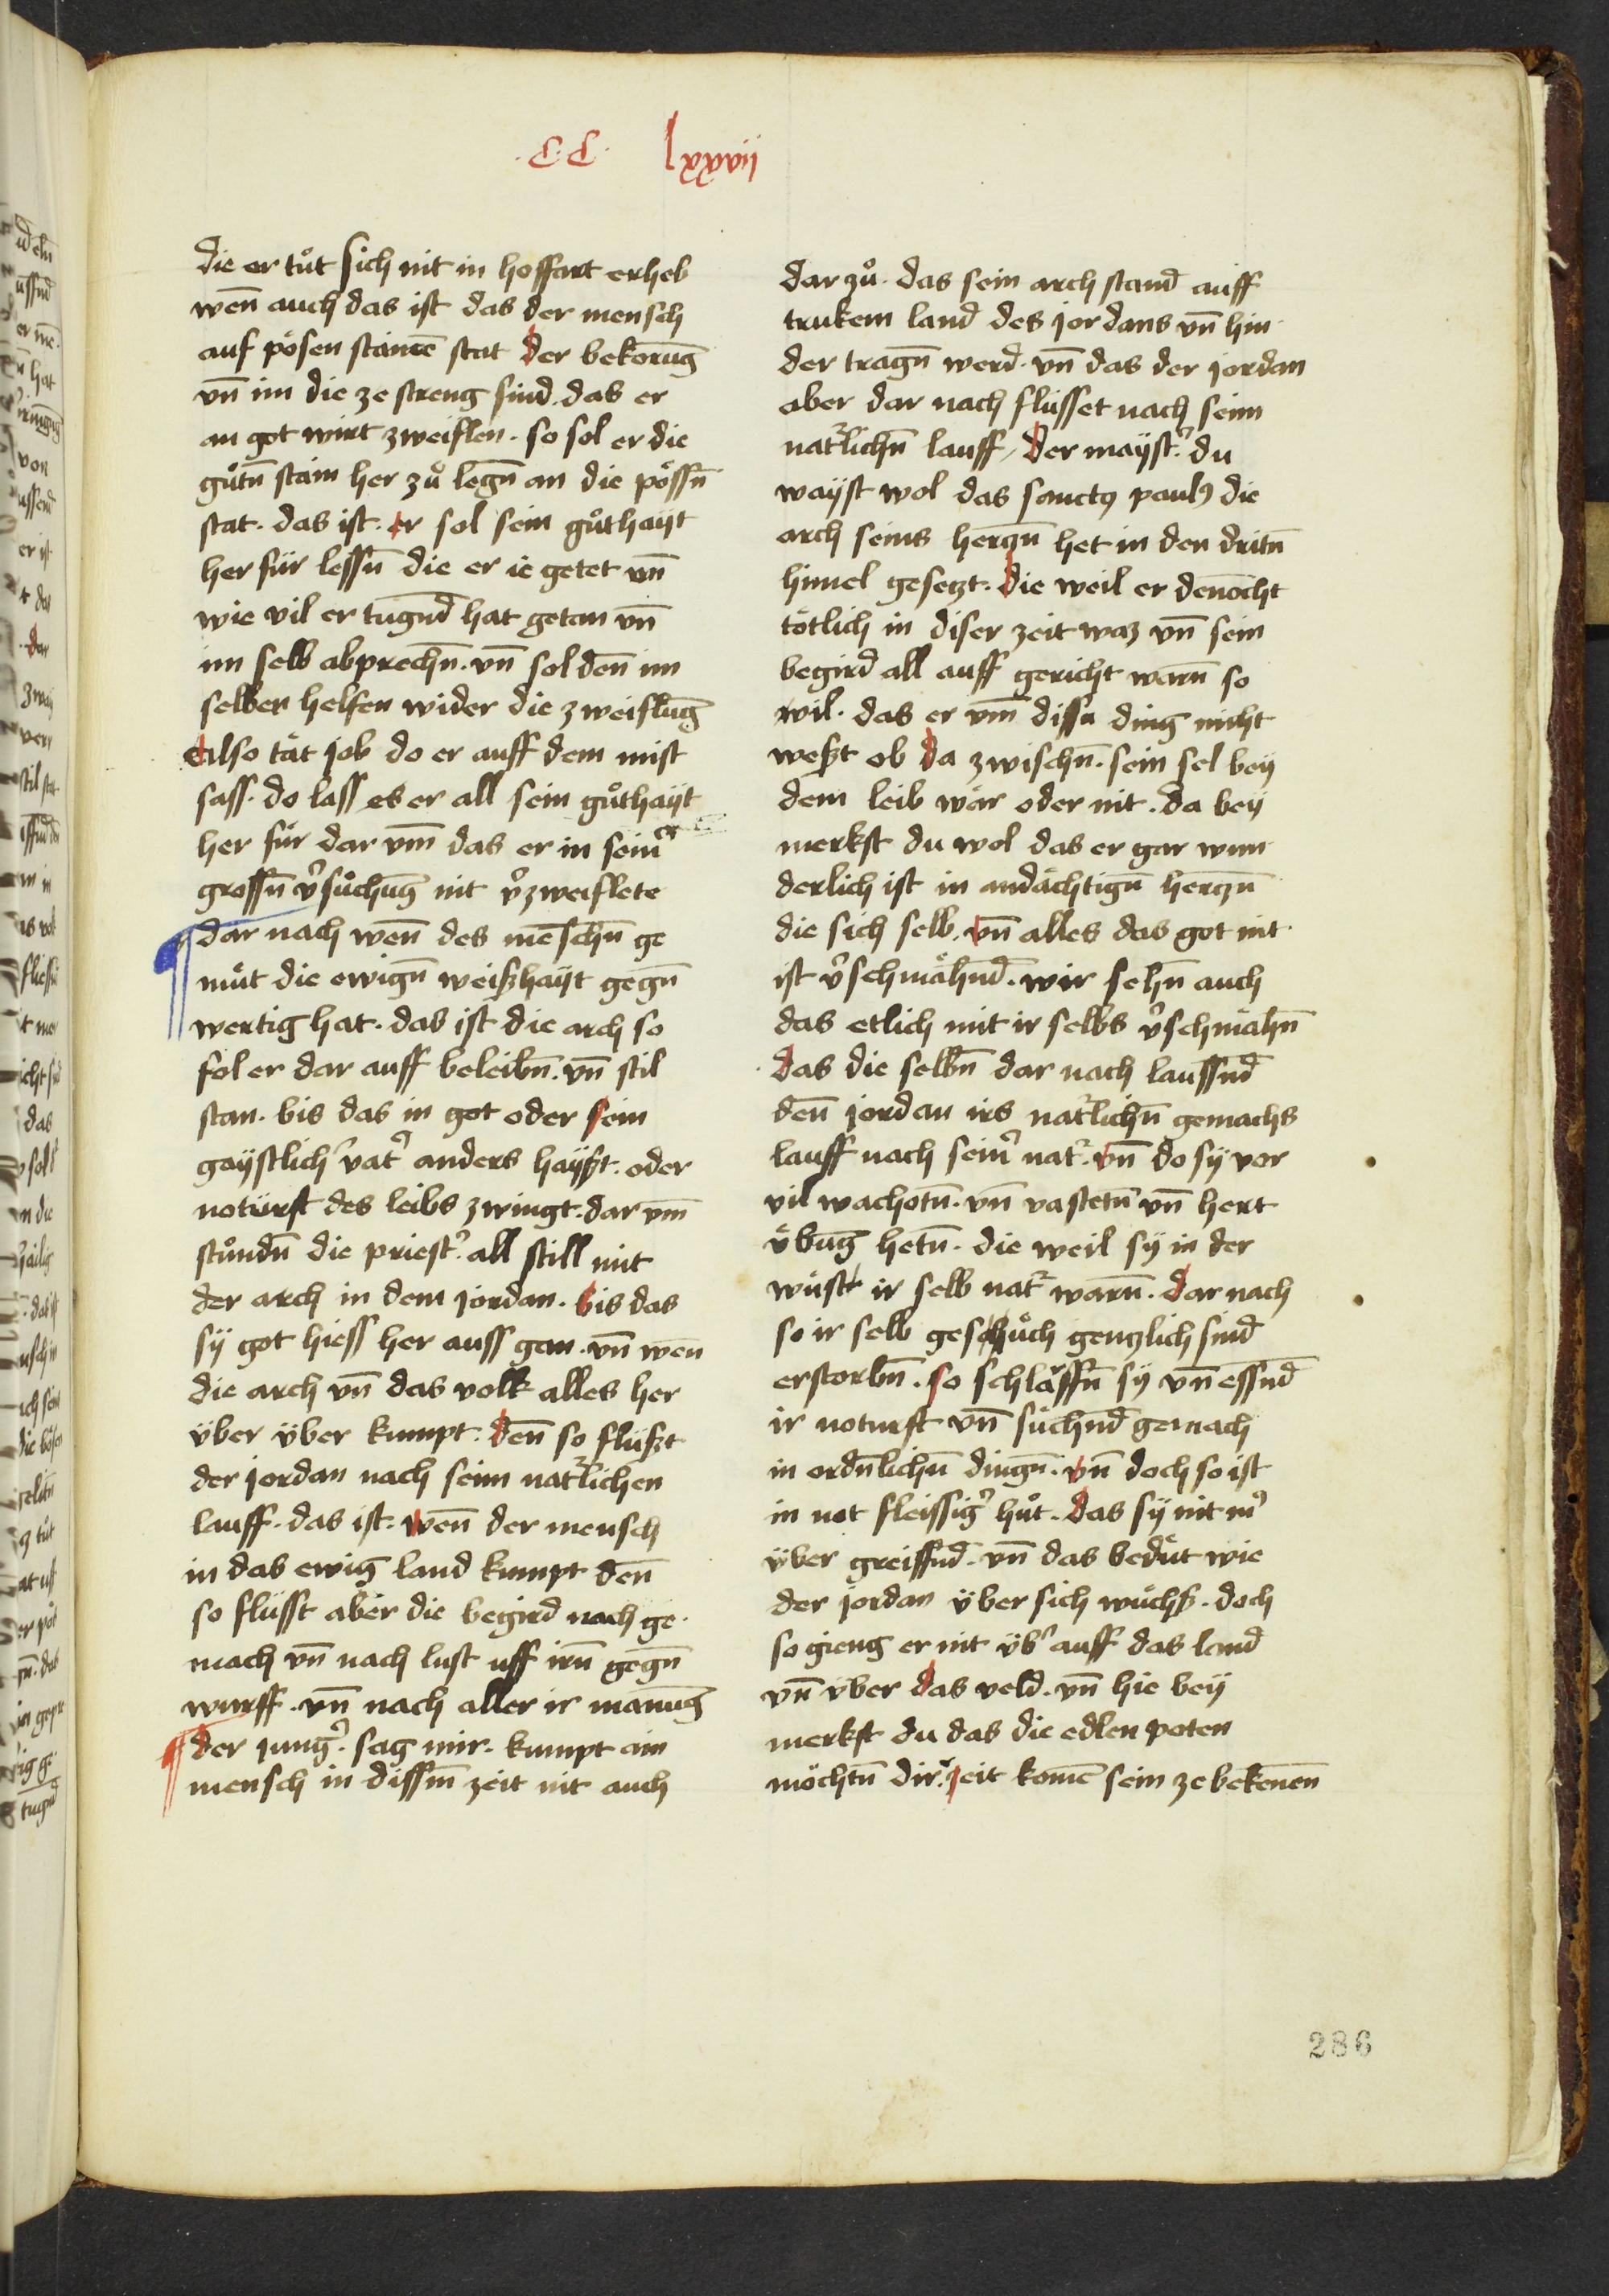 ·C·C· lxxvij
die er tůt sich nit in hoffart erheb
wen̄ auch das ist das der mensch
auf pösen stainē stat der bekorūg
vn̄ im die ze streng sind. das er
an got wirt zweiflen. so sol er die
gůtn̄ stain her zů legn̄ an die pössn̄
stat. das ist. er sol sein gůthayt
her für lessn̄ die er ie getet vn̄
wie vil er tugnd̄ hat getan vn̄
im selb abprechn̄. vn̄ sol den̄ im
selber helfen wider die zweiflūg
also tät job do er auff dem mist
sass. do lass es er all sein gůthayt
her für dar vm̄ das er in sein̄er
grossn̄ v̾sůchūg nit v̾zweiflete
dar nach wen̄ des mēschn̄ ge
müt die ewign̄ weißhayt gegn̄
wertig hat. das ist die arch so
sol er dar auff beleibn̄. vn̄ stil
stan. bis das in got oder sein
gaystlich̾ vat̾ anders hayßt. oder
noturft des leibs zwingt. dar vm̄
stůndn̄ die priest̾. all still mit
der arch in dem jordan. bis das
sy got hiess her auss gan. vn̄ wen̄
die arch vn̄ das volk alles her
über über kumpt. den̄ so flüßt
der jordan nach seim nat̾lichen
lauff. das ist. wen̄ der mensch
in das ewig land kumpt den̄
so flüsst aber die begird nach ge·
mach vn̄ nach lust uff irn̄ gegn̄
wurff. vn̄ nach aller ir manūg
der jung̾. sag mir. kumpt ain
mensch in dissm̄ zeit nit auch
dar zů. das sein arch stand̄ auff
trukem land̄ des jordans vn̄ hin·
der tragn̄ werd̄. vn̄ das der jordan
aber dar nach flüsset nach seim
nat̾lichn̄ lauff, der mayst̾. du
wayst wol das sanctꝰ paulꝰ die
arch seins herczn̄ het in den dritn̄
himel gesetzt. die weil er den̄ocht
tötlich in diser zeit waz vn̄ sein
begird all auff gericht warn̄ so
vil. das er vm̄ dissu ding nicht
weßt ob da zwischn̄. sein sel bey
dem leib wär oder nit. da bey
merkst du wol das er gar wun·
derlich ist in andächtign̄ herczn̄
die sich selb, vn̄ alles das got nit·
ist v̾schmähnd̄. wir sehn̄ auch
das etlich mit ir selbs v̾schmähn̄
das die selbn̄ dar nach laussnd̄
den̄ jordan irs nat̾lichn̄ gemachs
lauff nach sein̾ nat̾. vn̄ do sy vor
vil wachotn̄. vn̄ vastetn̄ vn̄ hert
übūg hetn̄. die weil sy in der
wüst ir selb nat̾ warn̄. dar nach
so ir selb gesuch genczlich sind̄
erstorbn̄. so schläffn̄ sy vn̄ essnd̄
ir noturft vn̄ süchnd̄ gemach
in ordn̄lichn̄ dingn̄. vn̄ doch so ist
in not fleissig̾ hůt. das sy nit m̾
über greiffnd̄. vn̄ das bedüt wie
der jordan über sich wüchß. doch
so gieng er nit üb̾ auff das land̄
vn̄ vber das veld. vn̄ hie bey
merkst du das die edlen poten
möchtn̄ dir. zeit komē sein ze bekenen̄
286